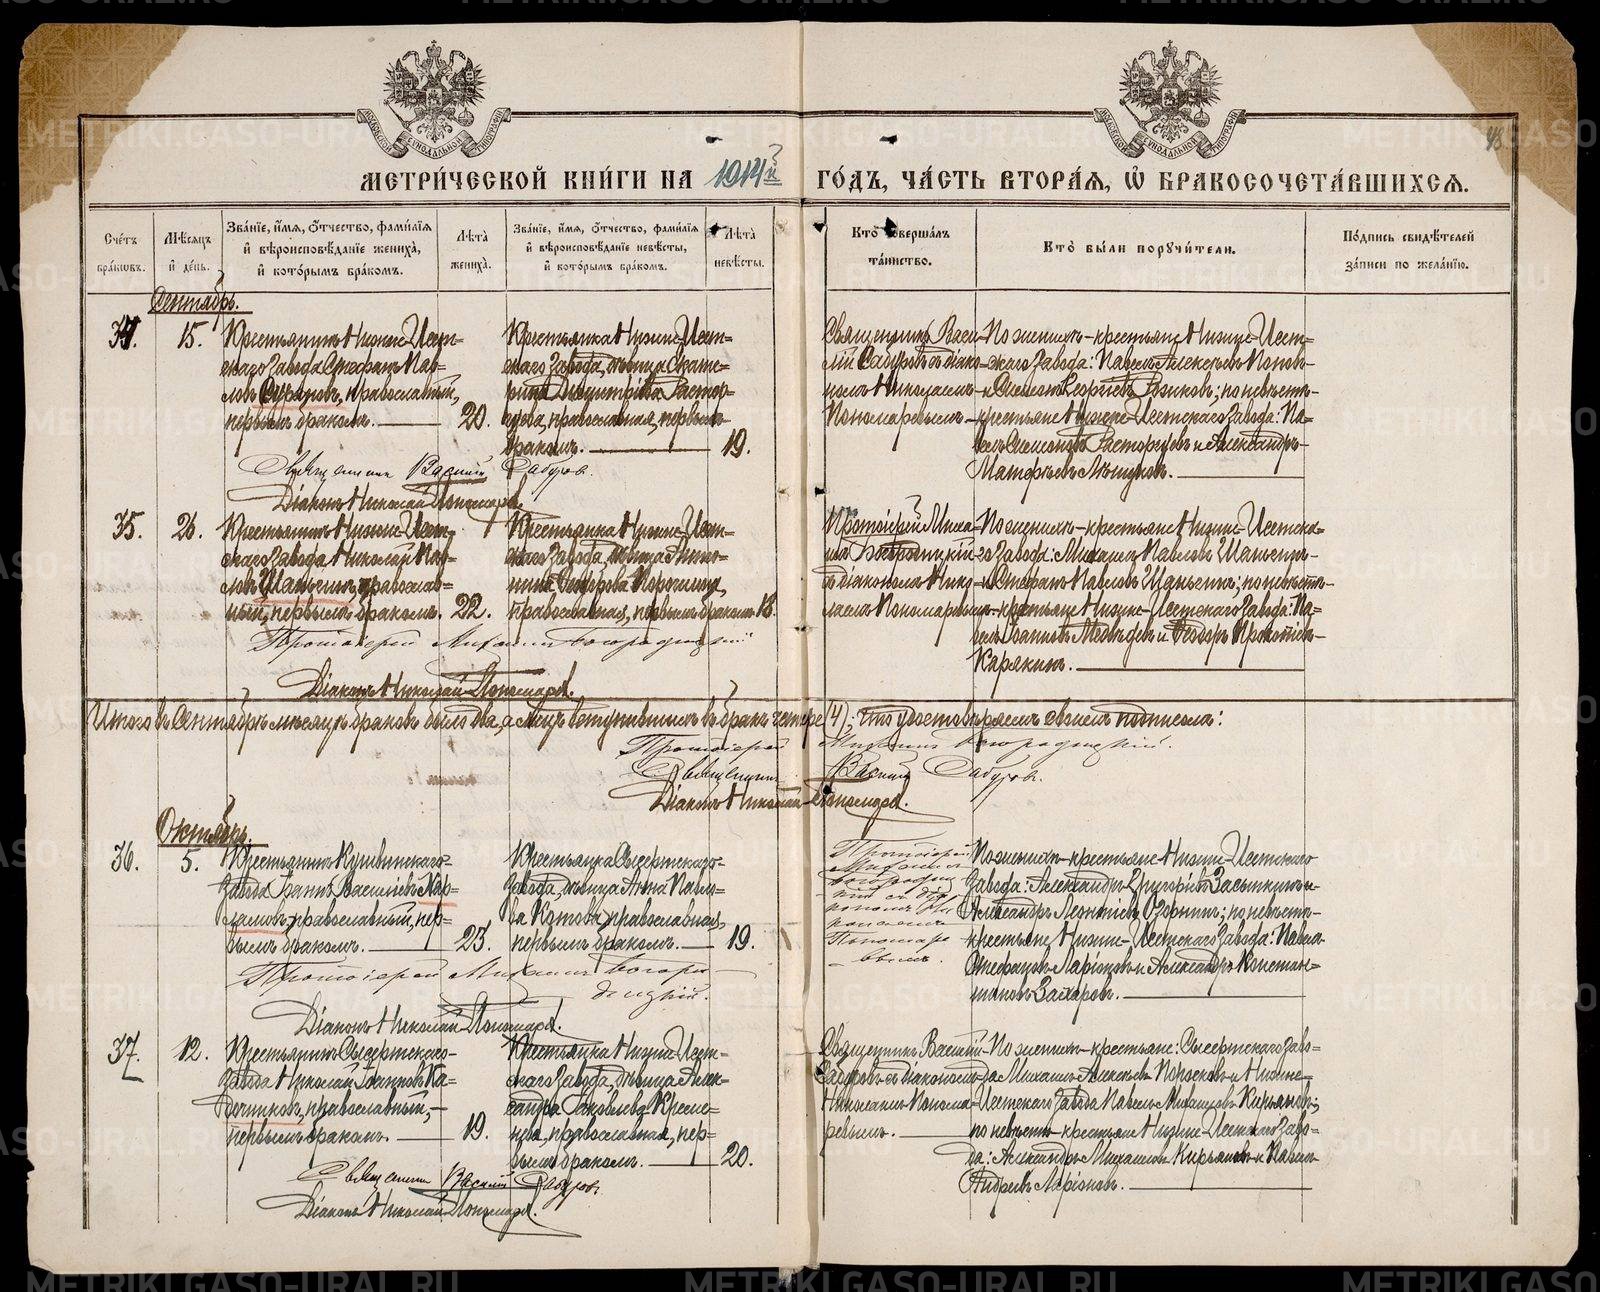 МЕТРИЧЕСКОЙ КНИГИ НА 1914й ГОДЪ, ЧАСТЬ ВТОРАЯ, Ѡ БРАКОСОЧЕТАВШИХСЯ.
48
Счетъ браковъ.
Мѣсяцъ и день.
Званіе, имя, отчество, фамилія и вѣроисповѣданіе жениха, и которымъ бракомъ.
Лѣта жениха.
Званіе, имя, отчество, фамилія и вѣроисповѣданіе невѣсты, и которымъ бракомъ.
Лѣта невѣсты.
Кто совершалъ таинство.
Кто были поручители.
Подпись свидѣтелей записи по желанію.
Сентябрь.
34. 15.
Крестьянинъ Нижне-Исет-
скаго завода Стефанъ Пав-
ловъ православный,
первымъ бракомъ. 20.
Крестьянка Нижне-Исет-
скаго завода, дѣвица Екате-
рина Димитріева Растор-
гуева, православная, первымъ
бракомъ. 19.
Священникъ Васи-
лій Сабуровъ съ діако-
номъ Николаемъ
Пономаревымъ.
По женихѣ - крестьяне Нижне-Исет-
скаго завода: Павелъ Алексѣевъ Поповъ
и Симеонъ Георгіевъ; по невѣстѣ -
крестьяне Нижне-Исетскаго завода: Па-
велъ Симеоновъ Расторгуевъ и Александръ
Матфѣевъ
Священникъ Василій Сабуровъ.
Діаконъ Николай Пономаревъ.
35. 26.
Крестьянинъ Нижне-Исет-
скаго завода Николай Пав-
ловъ Шаньгинъ, православ-
ный, первымъ бракомъ. 22.
Крестьянка Нижне-Исет-
скаго завода, дѣвица Анто-
нина
православная, первымъ бракомъ. 18.
Протоіерей Миха-
илъ Богородицкій
съ діакономъ Нико-
лаемъ Пономаревымъ.
По женихѣ - крестьяне Нижне-Исетска-
го завода: Михаилъ Павловъ Шаньгинъ
и Стефанъ Павловъ Шаньгинъ; по невѣстѣ -
крестьяне Нижне-Исетскаго завода: Па-
велъ Іоанновъ Медвѣдевъ и Ѳеодоръ Прокопіевъ
Карякинъ.
Протоіерей Михаилъ Богородицкій
Діаконъ Николай Пономаревъ.
Итого въ Сентябрѣ мѣсяцѣ браковъ было два, а лицъ вступившихъ въ бракъ четыре (4); что удостовѣряемъ своимъ подписомъ:
Протоіерей Михаилъ Богородицкій.
Священникъ Василій Сабуровъ.
Діаконъ Николай Пономаревъ.
Октябрь.
36. 5.
Крестьянинъ Кушвинскаго
завода Іоаннъ Василіевъ
православный, пер-
вымъ бракомъ. 23.
Крестьянка Сысертскаго
завода, дѣвица Анна Павло-
ва Котова, православная,
первымъ бракомъ. 19.
Протоіерей
Михаилъ
Богородиц-
кій съ діа-
кономъ Ни-
колаемъ
Пономаре-
вымъ.
По женихѣ - крестьяне Нижне-Исетскаго
завода: Александръ Григоріевъ Засыпкинъ и
Александръ Леонтіевъ; по невѣстѣ -
крестьяне Нижне-Исетскаго завода: Павелъ
Стефановъ Ларіоновъ и Александръ Констан-
тиновъ Захаровъ.
Протоіерей Михаилъ Богоро-
дицкій.
Діаконъ Николай Пономаревъ.
37. 12.
Крестьянинъ Сысертскаго
завода Николай Іоанновъ Ка-
дочниковъ, православный,
первымъ бракомъ. 19.
Крестьянка Нижне-Исет-
скаго завода, дѣвица Алек-
сандра Іаковлева
православная, пер-
вымъ бракомъ. 20.
Священникъ Василій
Сабуровъ съ діакономъ
Николаемъ Понома-
ревымъ.
По женихѣ - крестьяне: Сысертскаго заво-
да Михаилъ Алексѣевъ и Нижне-
Исетскаго завода Павелъ Михаиловъ Кирьяновъ;
по невѣстѣ - крестьяне Нижне-Исетскаго заво-
да: Александръ Михаиловъ Кирьяновъ и Павелъ
Андреевъ Ларіоновъ.
Священникъ Василій Сабуровъ.
Діаконъ Николай Пономаревъ.
METRIKI.GASO-URAL.RU